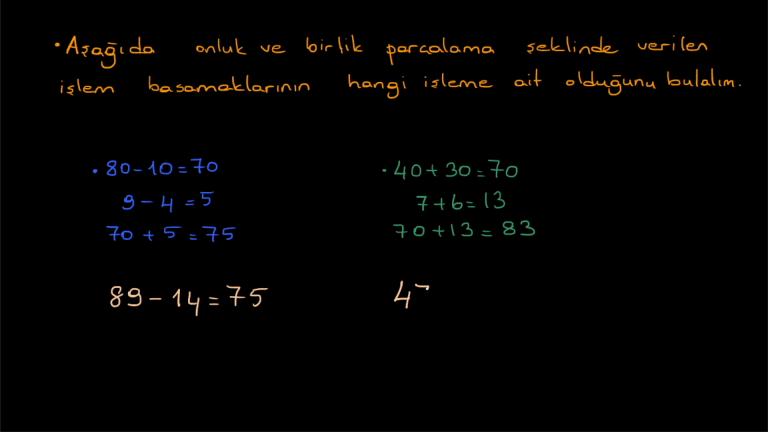 • Aşağıda onluk ve birlik parçalama şeklinde verilen
işlem basamaklarının hangi işleme ait olduğunu bulalım.
• 80 - 10 = 70
9 - 4 = 5
70 + 5 = 75
89 - 14 = 75
• 40 + 30 = 70
7 + 6 = 13
70 + 13 = 83
4